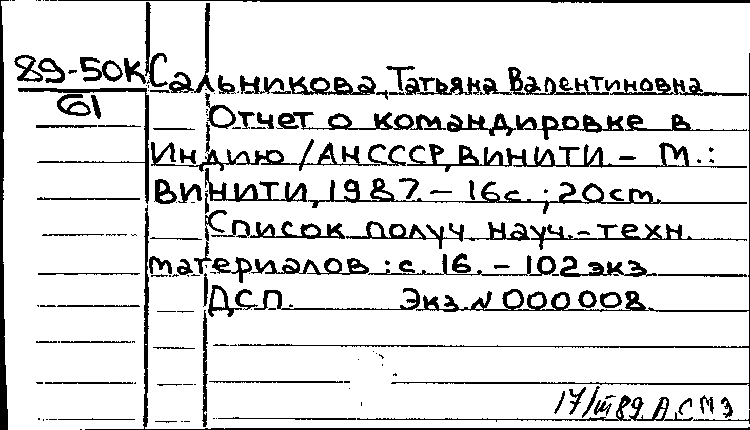 89-50К Сальникова, Татьяна Валентиновна
61
Отчет о командировке в
Индию / АН СССР, ВИНИТИ. – М.:
ВИНИТИ, 1987. – 16 с.; 20 cm.
Список получ. науч.-техн.
материалов: с. 16. – 102 экз.
ДСП. Экз. № 000008
17/III 89